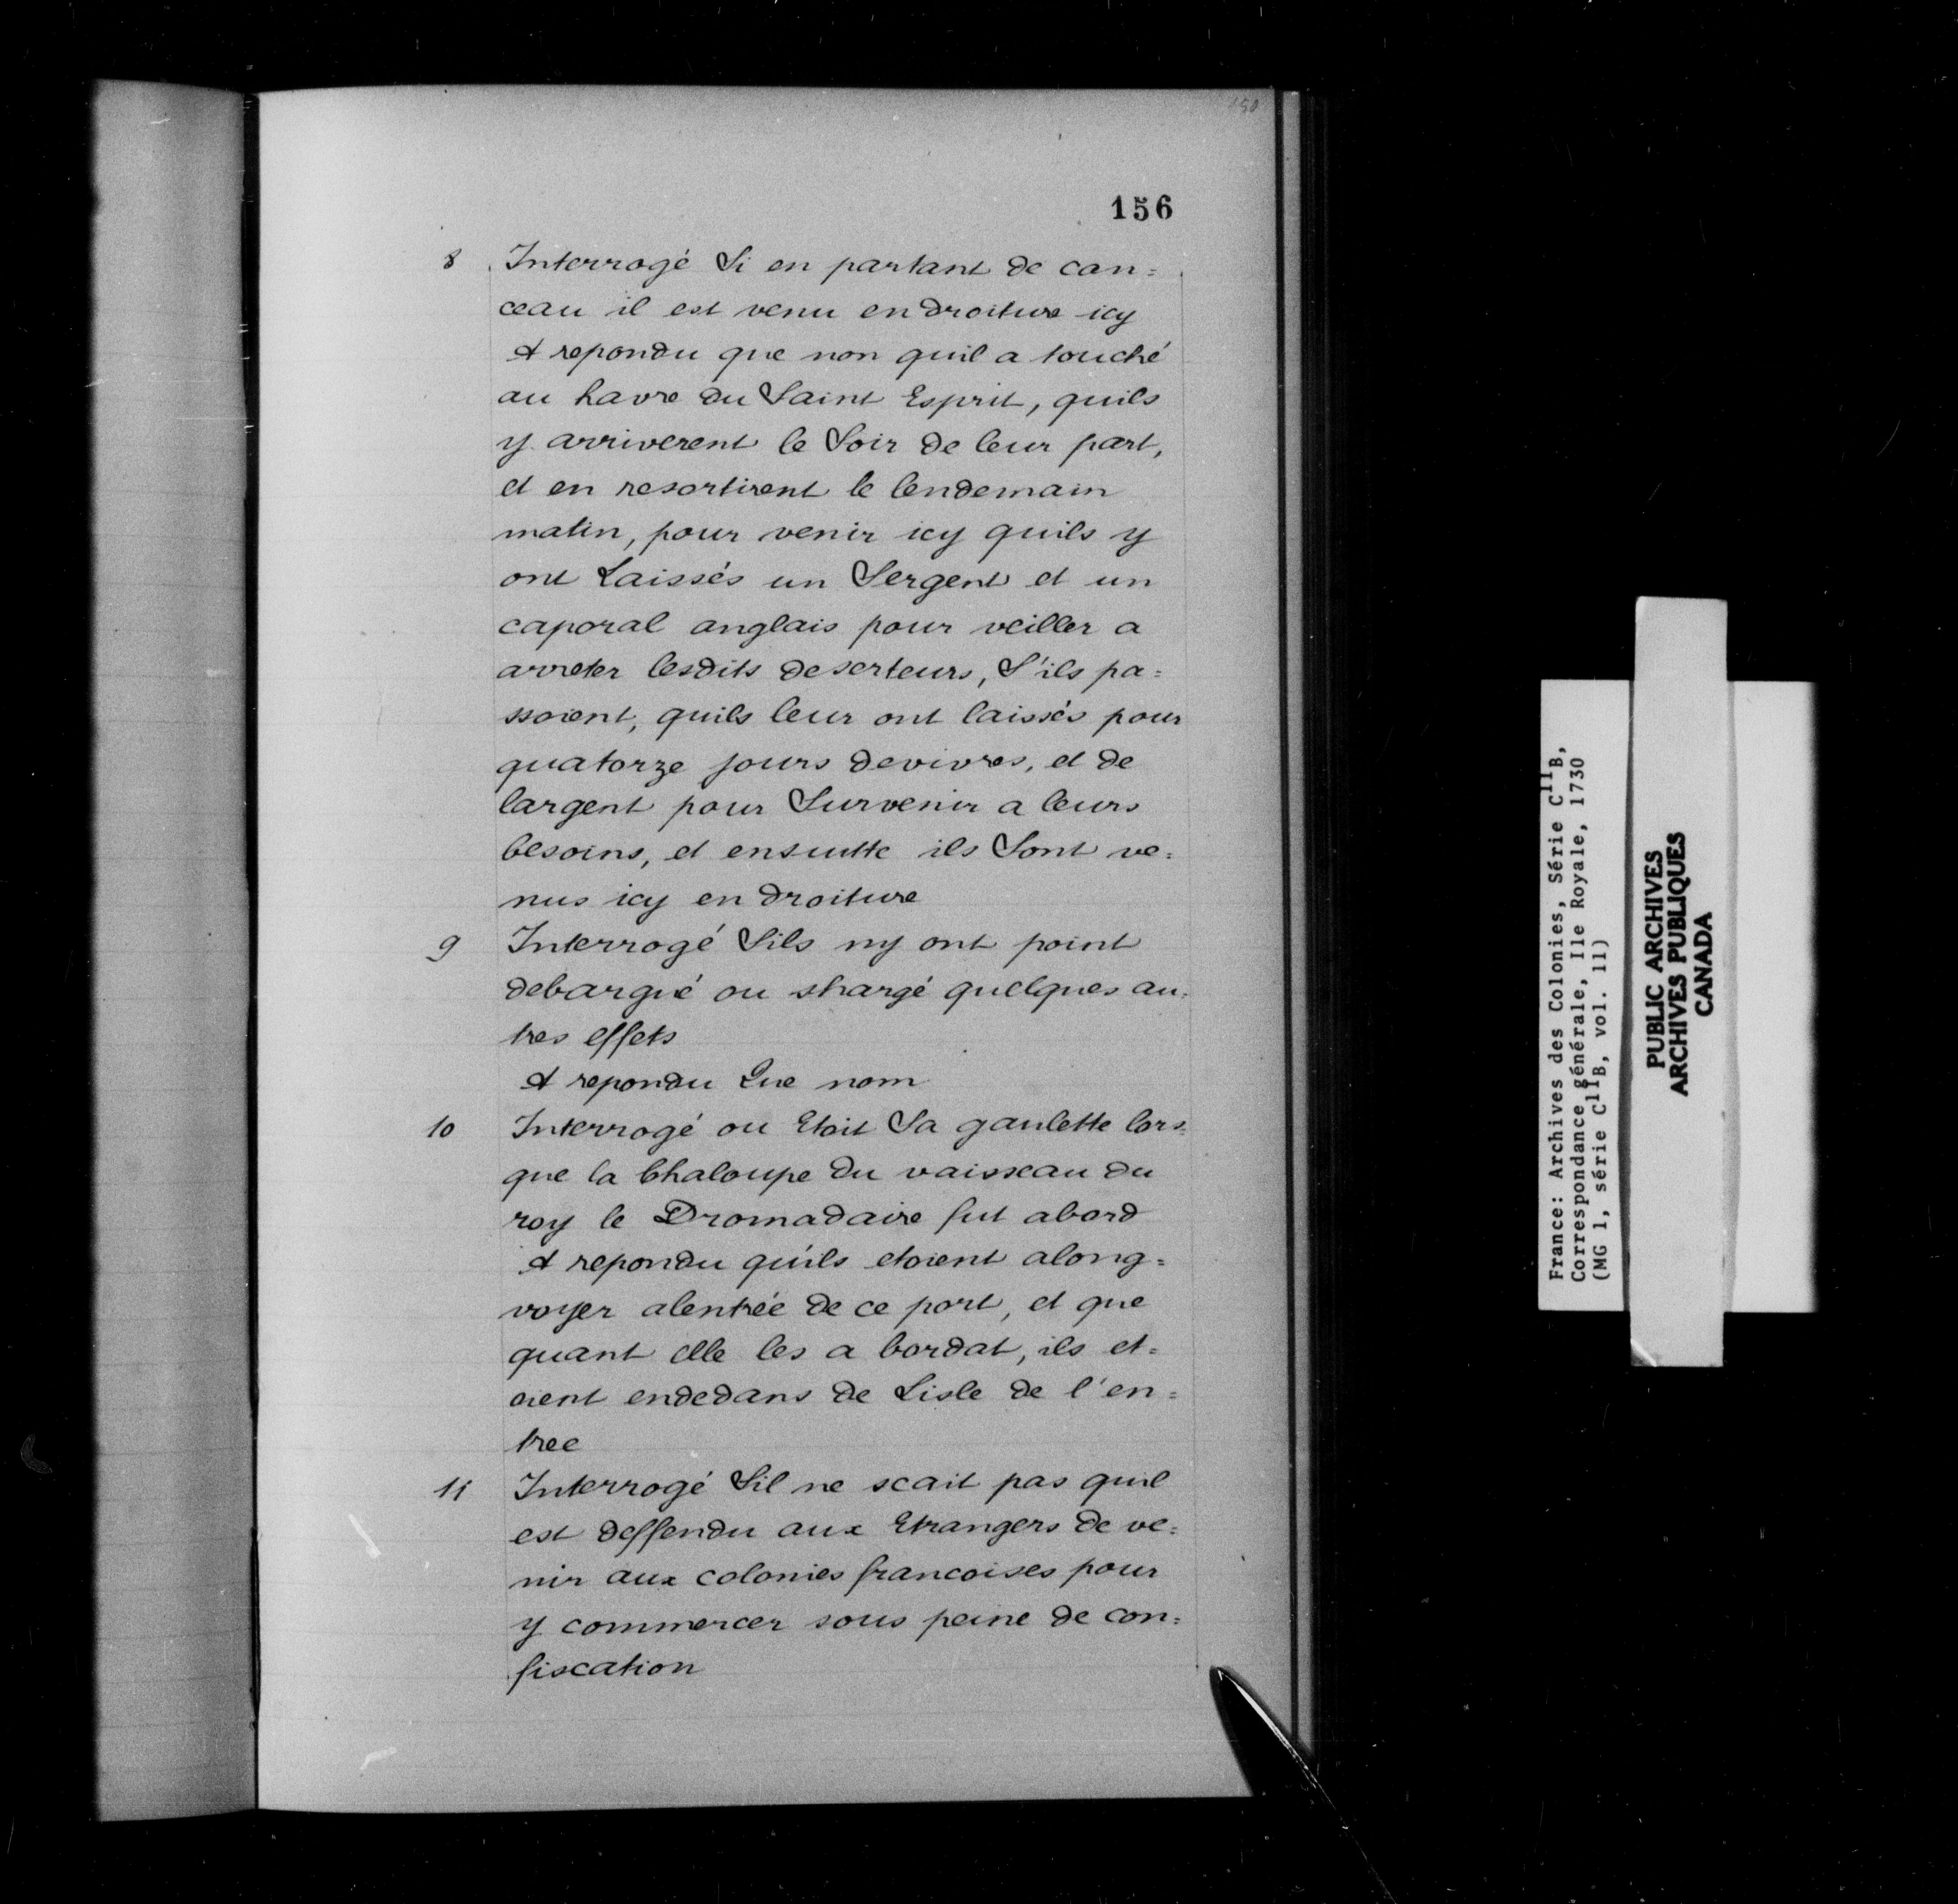 150
156
8 Interrogé Si en partant de can=
ceau il est venu en droiture icy
A repondu que non quil a touché
au havre du Saint Esprit, quils
y arriverent le Soir de leur part,
et en resortirent le lendemain
matin, pour venir icy quils y
ont Laissés un Sergent et un
caporal anglais pour veiller a
arreter lesdits deserteurs, S'ils pa=
ssoient, quils leur ont laissés pour
quatorze jours devivres, et de
largent pour Survenir a leurs
besoins, et ensuitte ils Sont ve=
nus icy en droiture
9 Interrogé Sils ny ont point
debarqué ou shargé quelques au=
tres effets
A repondu Que nom
10 Interrogé ou Etoit Sa gaulette lors=
que la Chaloupe du vaisseau du
roy le Dromadaire fut abord
A repondu qu'ils etoient along=
voyer alentrée de ce port, et que
quant elle les a bordat, ils et=
oient endedans de Lisle de l'en=
tree
11 Interrogé Sil ne scait pas quil
est deffendu aux Etrangers de ve=
nir aux colonies francoises pour
y commercer sous peine de con=
fiscation
France: Archives des Colonies, Série C11B,
Correspondance générale, Ile Royale, 1730
(MG 1, série C11B, vol. 11)
PUBLIC ARCHIVES
ARCHIVES PUBLIQUES
CANADA